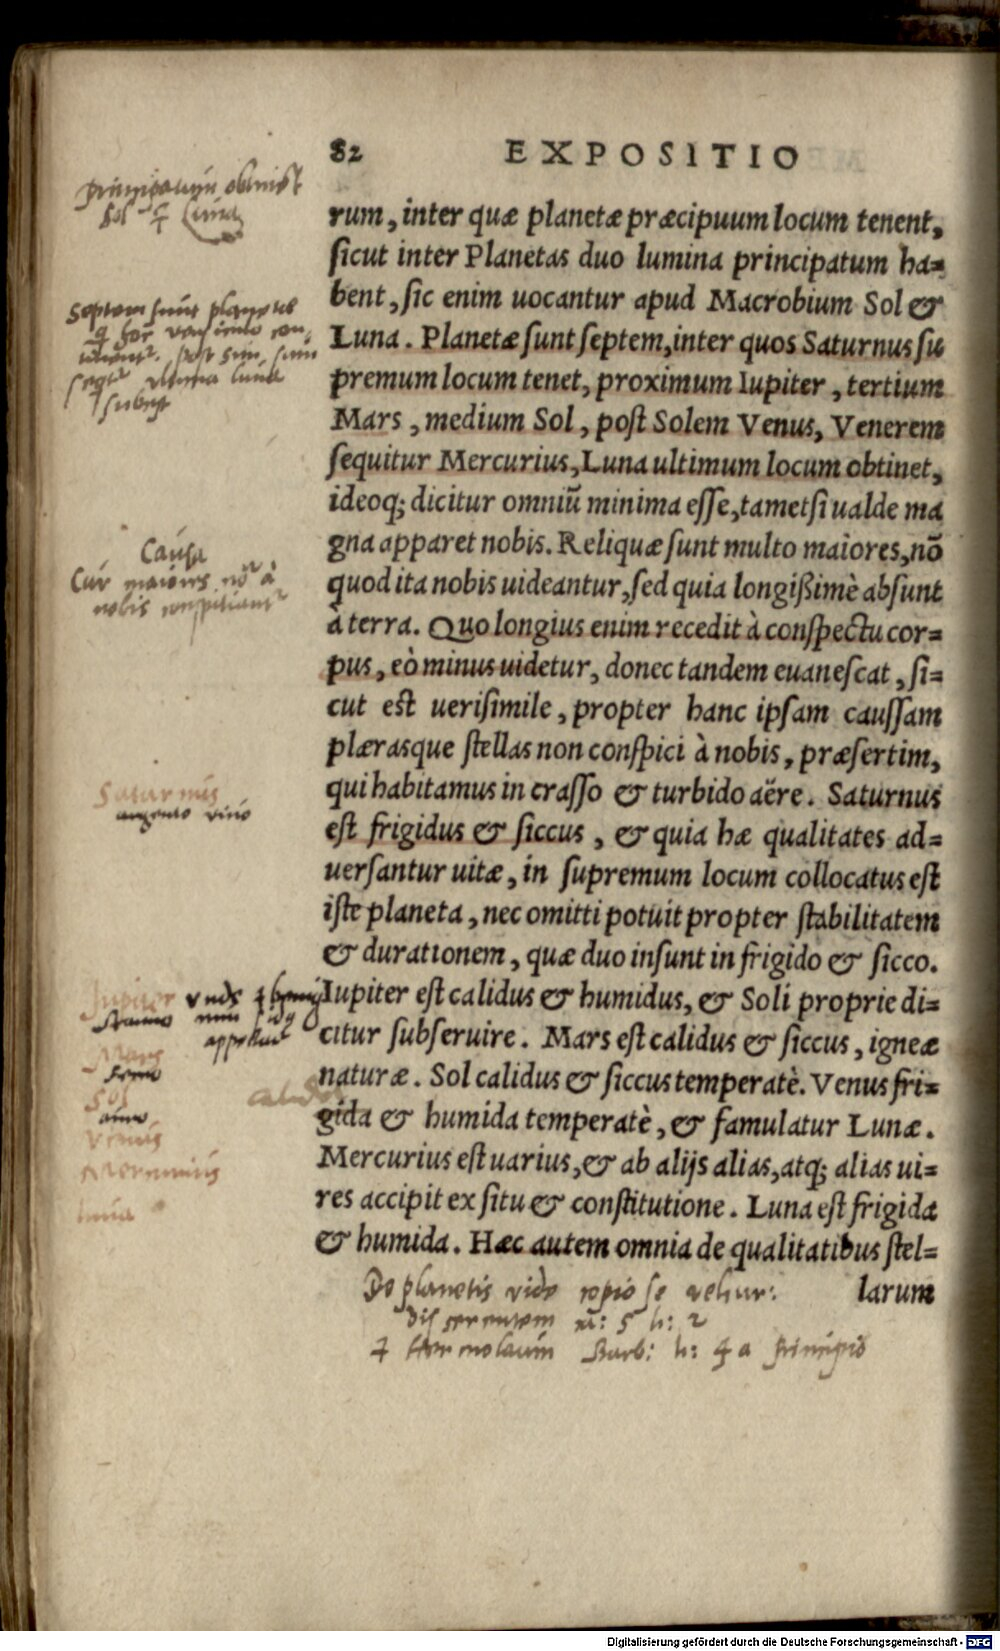 82 EXPOSITIO
rum, inter quæ planetæ præcipuum locum tenent,
sicut inter Planetas duo lumina principatum ha=
bent, sic enim uocantur apud Macrobium Sol &
Luna. Planetæ sunt septem, inter quos Saturnus su
premum locum tenet, proximum Iupiter, tertium
Mars, medium Sol, post Solem Venus, Venerem
sequitur Mercurius, Luna ultimum locum obtinet,
ideoq; dicitur omniũ minima esse, tametsi ualde ma
gna apparet nobis. Reliquæ sunt multo maiores, nõ
quod ita nobis uideantur, sed quia longißimè absunt
à terra. Quo longius enim recedit à conspectu cor=
pus, eò minus uidetur, donec tandem euanescat, si=
cut est uerisimile, propter hanc ipsam caussam
plærasque stellas non conspici à nobis, præsertim,
qui habitamus in crasso & turbido aëre. Saturnus
est frigidus & siccus, & quia hæ qualitates ad=
uersantur uitæ, in supremum locum collocatus est
iste planeta, nec omitti potuit propter stabilitatem
& durationem, quæ duo insunt in frigido & sicco.
Iupiter est calidus & humidus, & Soli proprie di=
citur subseruire. Mars est calidus & siccus, igneæ
naturæ. Sol calidus & siccus temperatè. Venus fri=
gida & humida temperatè, & famulatur Lunæ.
Mercurius est uarius, & ab alijs alias, atq; alias ui=
res accipit ex situ & constitutione. Luna est frigida
& humida. Hæc autem omnia de qualitatibus stel=
larum
principatum obtinet
Sol & Luna
Septem sunt planetae
Causa
Cur maiores nõ à
nobis
Saturnus
argento vivo
Iupiter
Mars
ferro
Sol
auro
Venus
Mercurius
luna
De planetis vide
Digitalisierung gefördert durch die Deutsche Forschungsgemeinschaft - DFG